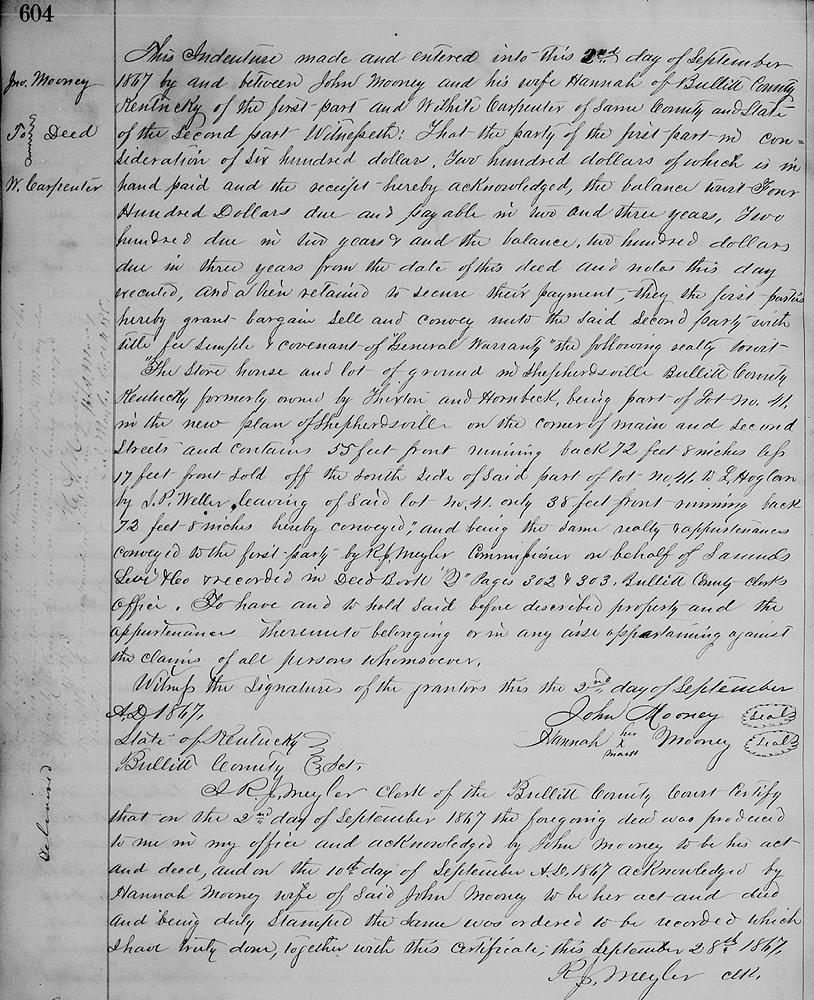 604
Jno. Mooney
To } Deed
W. Carpenter
This Indenture made and entered into this 2nd day of September
1867 by and between John Mooney and his wife Hannah of Bullitt County
Kentucky of the first part and Wilhite Carpenter of Same County and State
of the Second part Witnesseth: That the party of the first part in con=
sideration of Six hundred dollars, Two hundred dollars of which is in
hand paid and the receipt hereby acknowledged, the balance towit Four
Hundred Dollars due and payable in two and three years, Two
hundred due in two years & and the balance, two hundred dollars
due in three years from the date of this deed and notes this day
executed, and a lien retained to secure their payment, they the first parties
hereby grant bargain Sell and convey unto the said Second party with
title fee simple & covenant of "General Warranty" the following realty towit
"The Store house and lot of ground in Shepherdsville Bullitt County
Kentucky formerly owned by Thixton and Hornbeck, being part of Lot No. 41,
in the new plan of Shepherdsville on the corner of main and Second
Streets and contains 55 feet front running back 72 feet 8 inches less
17 feet front sold off the South Side of Said part of lot no. 41. to L, Hoglan
by J. P. Weller, leaving of Said lot no. 41. only 38 feet front running back
72 feet 8 inches hereby conveyed", and being the same realty & appurtenances
conveyed to the first party by R. J. Meyler Commissioner on behalf of Samuels
Levi & Co & recorded in Deed Book Pages 302 & 303. Bullitt County Clerks
Office. To have and to hold Said before described property and the
appurtenances thereunto belonging or in any wise appertaining against
the claims of all persons whomsoever.
Witness the Signatures of the grantors this the 2nd day of September
A.D 1867.
John Mooney (Seal)
Hannah her x mark Mooney (Seal)
State of Kentucky }
Bullitt County } Sct.
I R. J. Meyler Clerk of the Bullitt County Court Certify
that on the 2nd day of September 1867 the foregoing deed was produced
to me in my office and acknowledged by John Mooney to be his act
and deed, and on the 10th day of September A.D. 1867 acknowledged by
Hannah Mooney wife of Said John Mooney to be her act and deed
and being duly Stamped the same was ordered to be recorded which
I have truly done, together with this Certificate; this September 28th 1867.
R. J. Meyler Clk.
Delivered